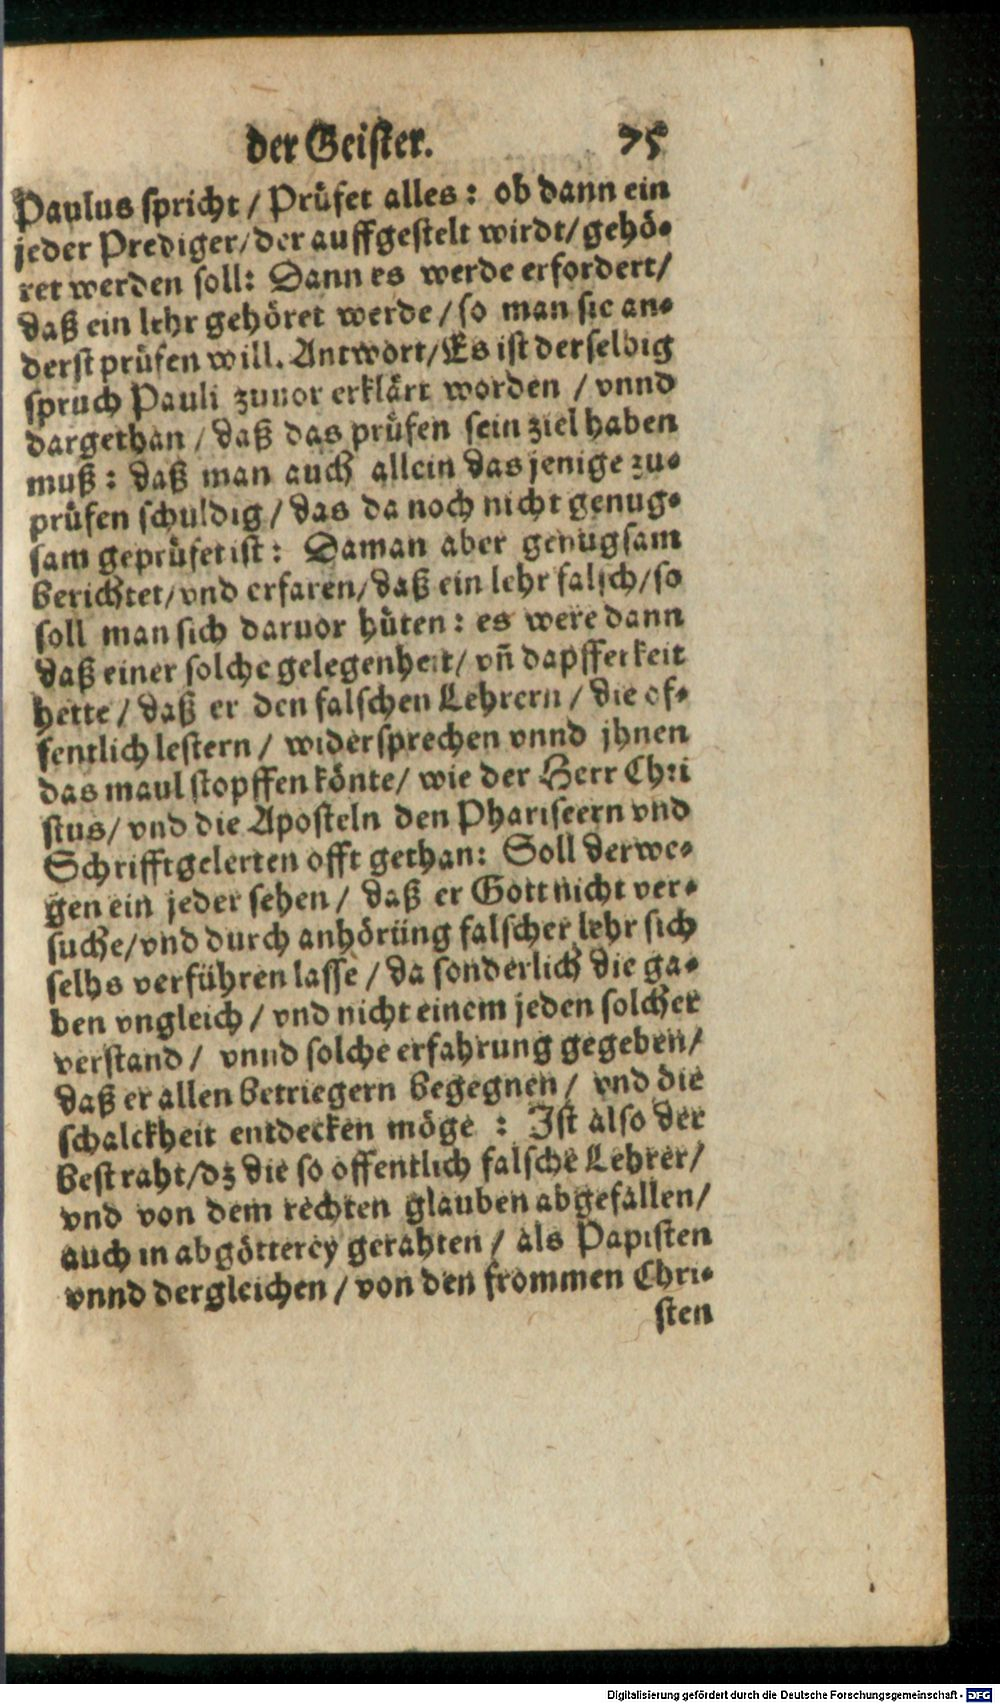 der Geister. 75
Paulus spricht / Prüfet alles: ob dann ein
jeder Prediger/der auffgestelt wirdt/gehö-
ret werden soll: Dann es werde erfordert/
daß ein lehr gehöret werde / so man sie an-
derst prüfen will. Antwort/Es ist derselbig
spruch Pauli zuuor erklärt worden / vnnd
dargethan / daß das prüfen sein ziel haben
muß: daß man auch allein das jenige zu-
prüfen schuldig / das da noch nicht genug-
sam geprüfet ist: Da man aber genugsam
berichtet/vnd erfaren/daß ein lehr falsch/so
soll man sich daruor hüten: es were dann
daß einer solche gelegenheit/ vñ dapfferkeit
hette / daß er den falschen Lehrern / die of-
fentlich lestern / widersprechen vnnd jhnen
das maul stopffen könte/ wie der Herr Chri
stus/ vnd die Aposteln den Phariseern vnd
Schrifftgelerten offt gethan: Soll derwe-
gen ein jeder sehen / daß er Gott nicht ver-
suche/vnd durch anhörüng falscher lehr sich
selbs verführen lasse / da sonderlich die ga-
ben vngleich / vnd nicht einem jeden solcher
verstand / vnnd solche erfahrung gegeben/
daß er allen betriegern begegnen / vnd die
schalckheit entdecken möge : Ist also der
best raht/dz die so offentlich falsche Lehrer/
vnd von dem rechten glauben abgefallen/
auch in abgötterey gerahten / als Papisten
vnnd dergleichen / von den frommen Chri-
sten
Digitalisierung gefördert durch die Deutsche Forschungsgemeinschaft - DFG